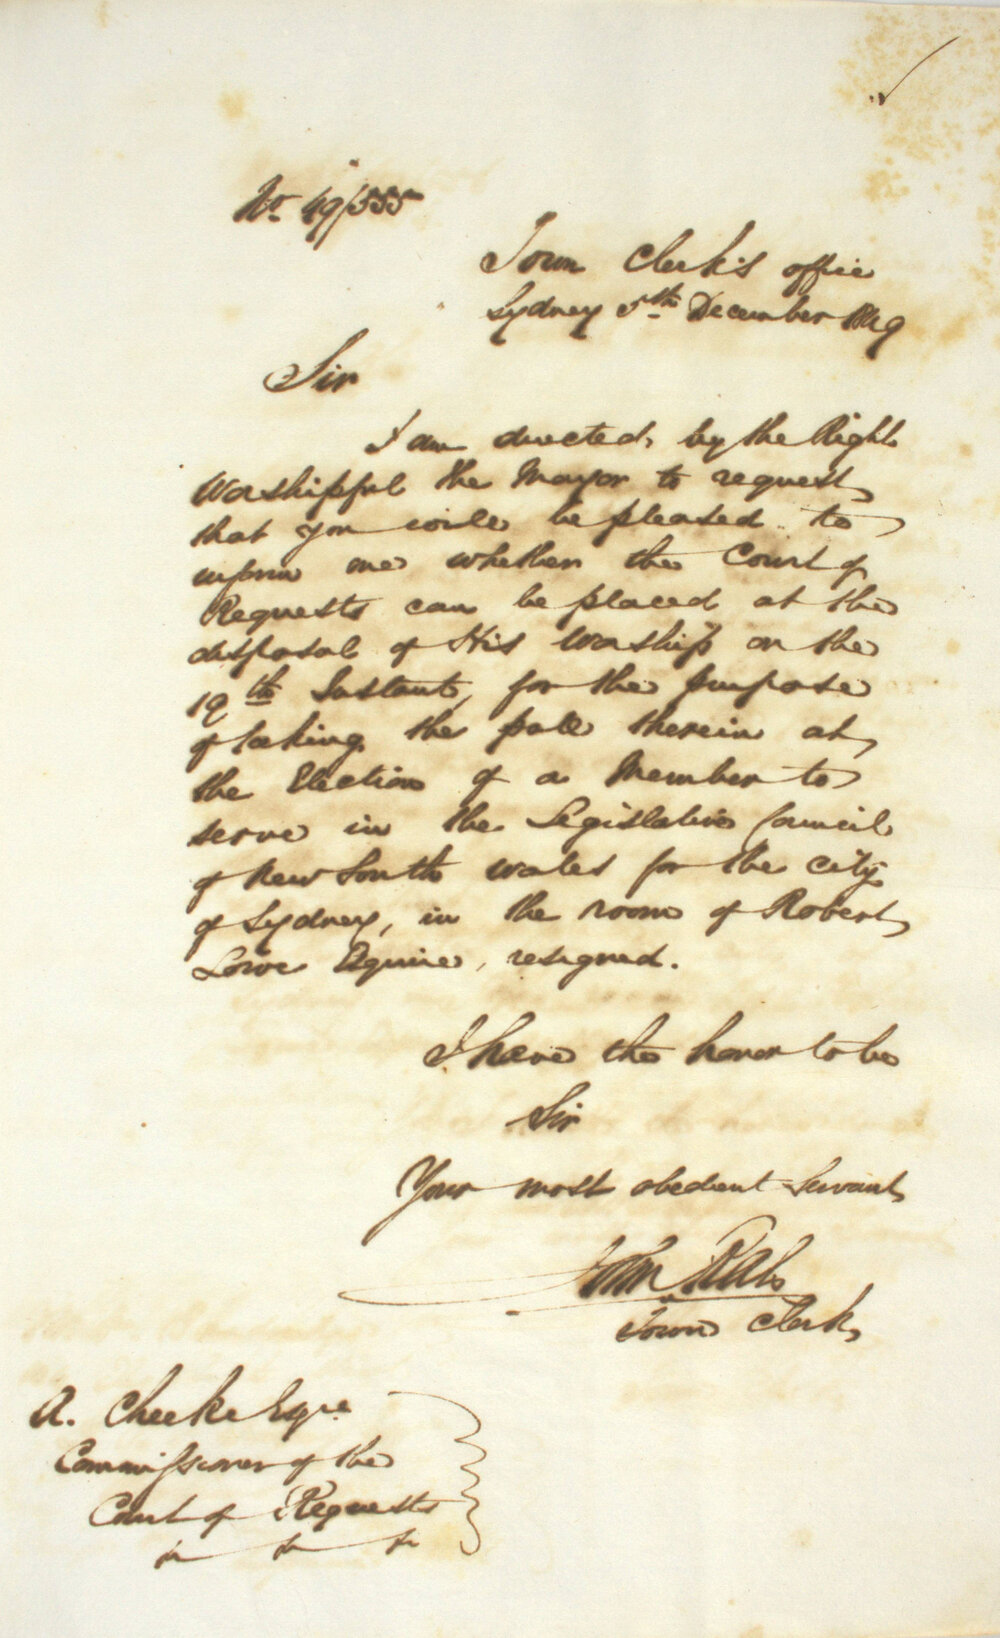 No. 49/555
Town Clerk's office
Sydney 5th December 1849
Sir
I am directed, by the Right
Worshipful the Mayor to request
that you will be pleased to
inform me whether the Court of
Requests can be placed at the
disposal of His Worship on the
19th Instant, for the purpose
of taking the poll therein at
the Election of a Member to
serve in the Legislative Council
of New South Wales for the city
of Sydney, in the room of Robert
Lowe Esquire, resigned.
I have the honor to be
Sir
Your most obedient Servant
John Rae
Town Clerk
A. Cheeke Esqre
Commissioner of the
Court of Requests